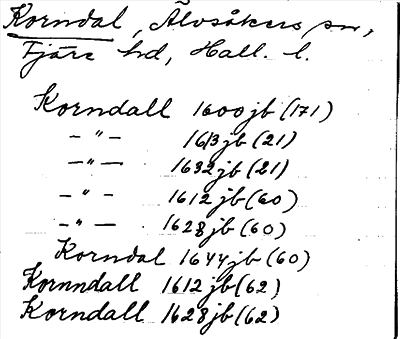 Korndal, Älvsåkers sn,
Fjäre hd, Hall. l.
Korndall 1600 jb (171)
– " – 1613 jb (21)
– " – 1632 jb (21)
– " – 1612 jb (60)
– " – 1628 jb (60)
Korndal 1644 jb (60)
Kornndall 1612 jb (62)
Korndall 1628 jb (62)